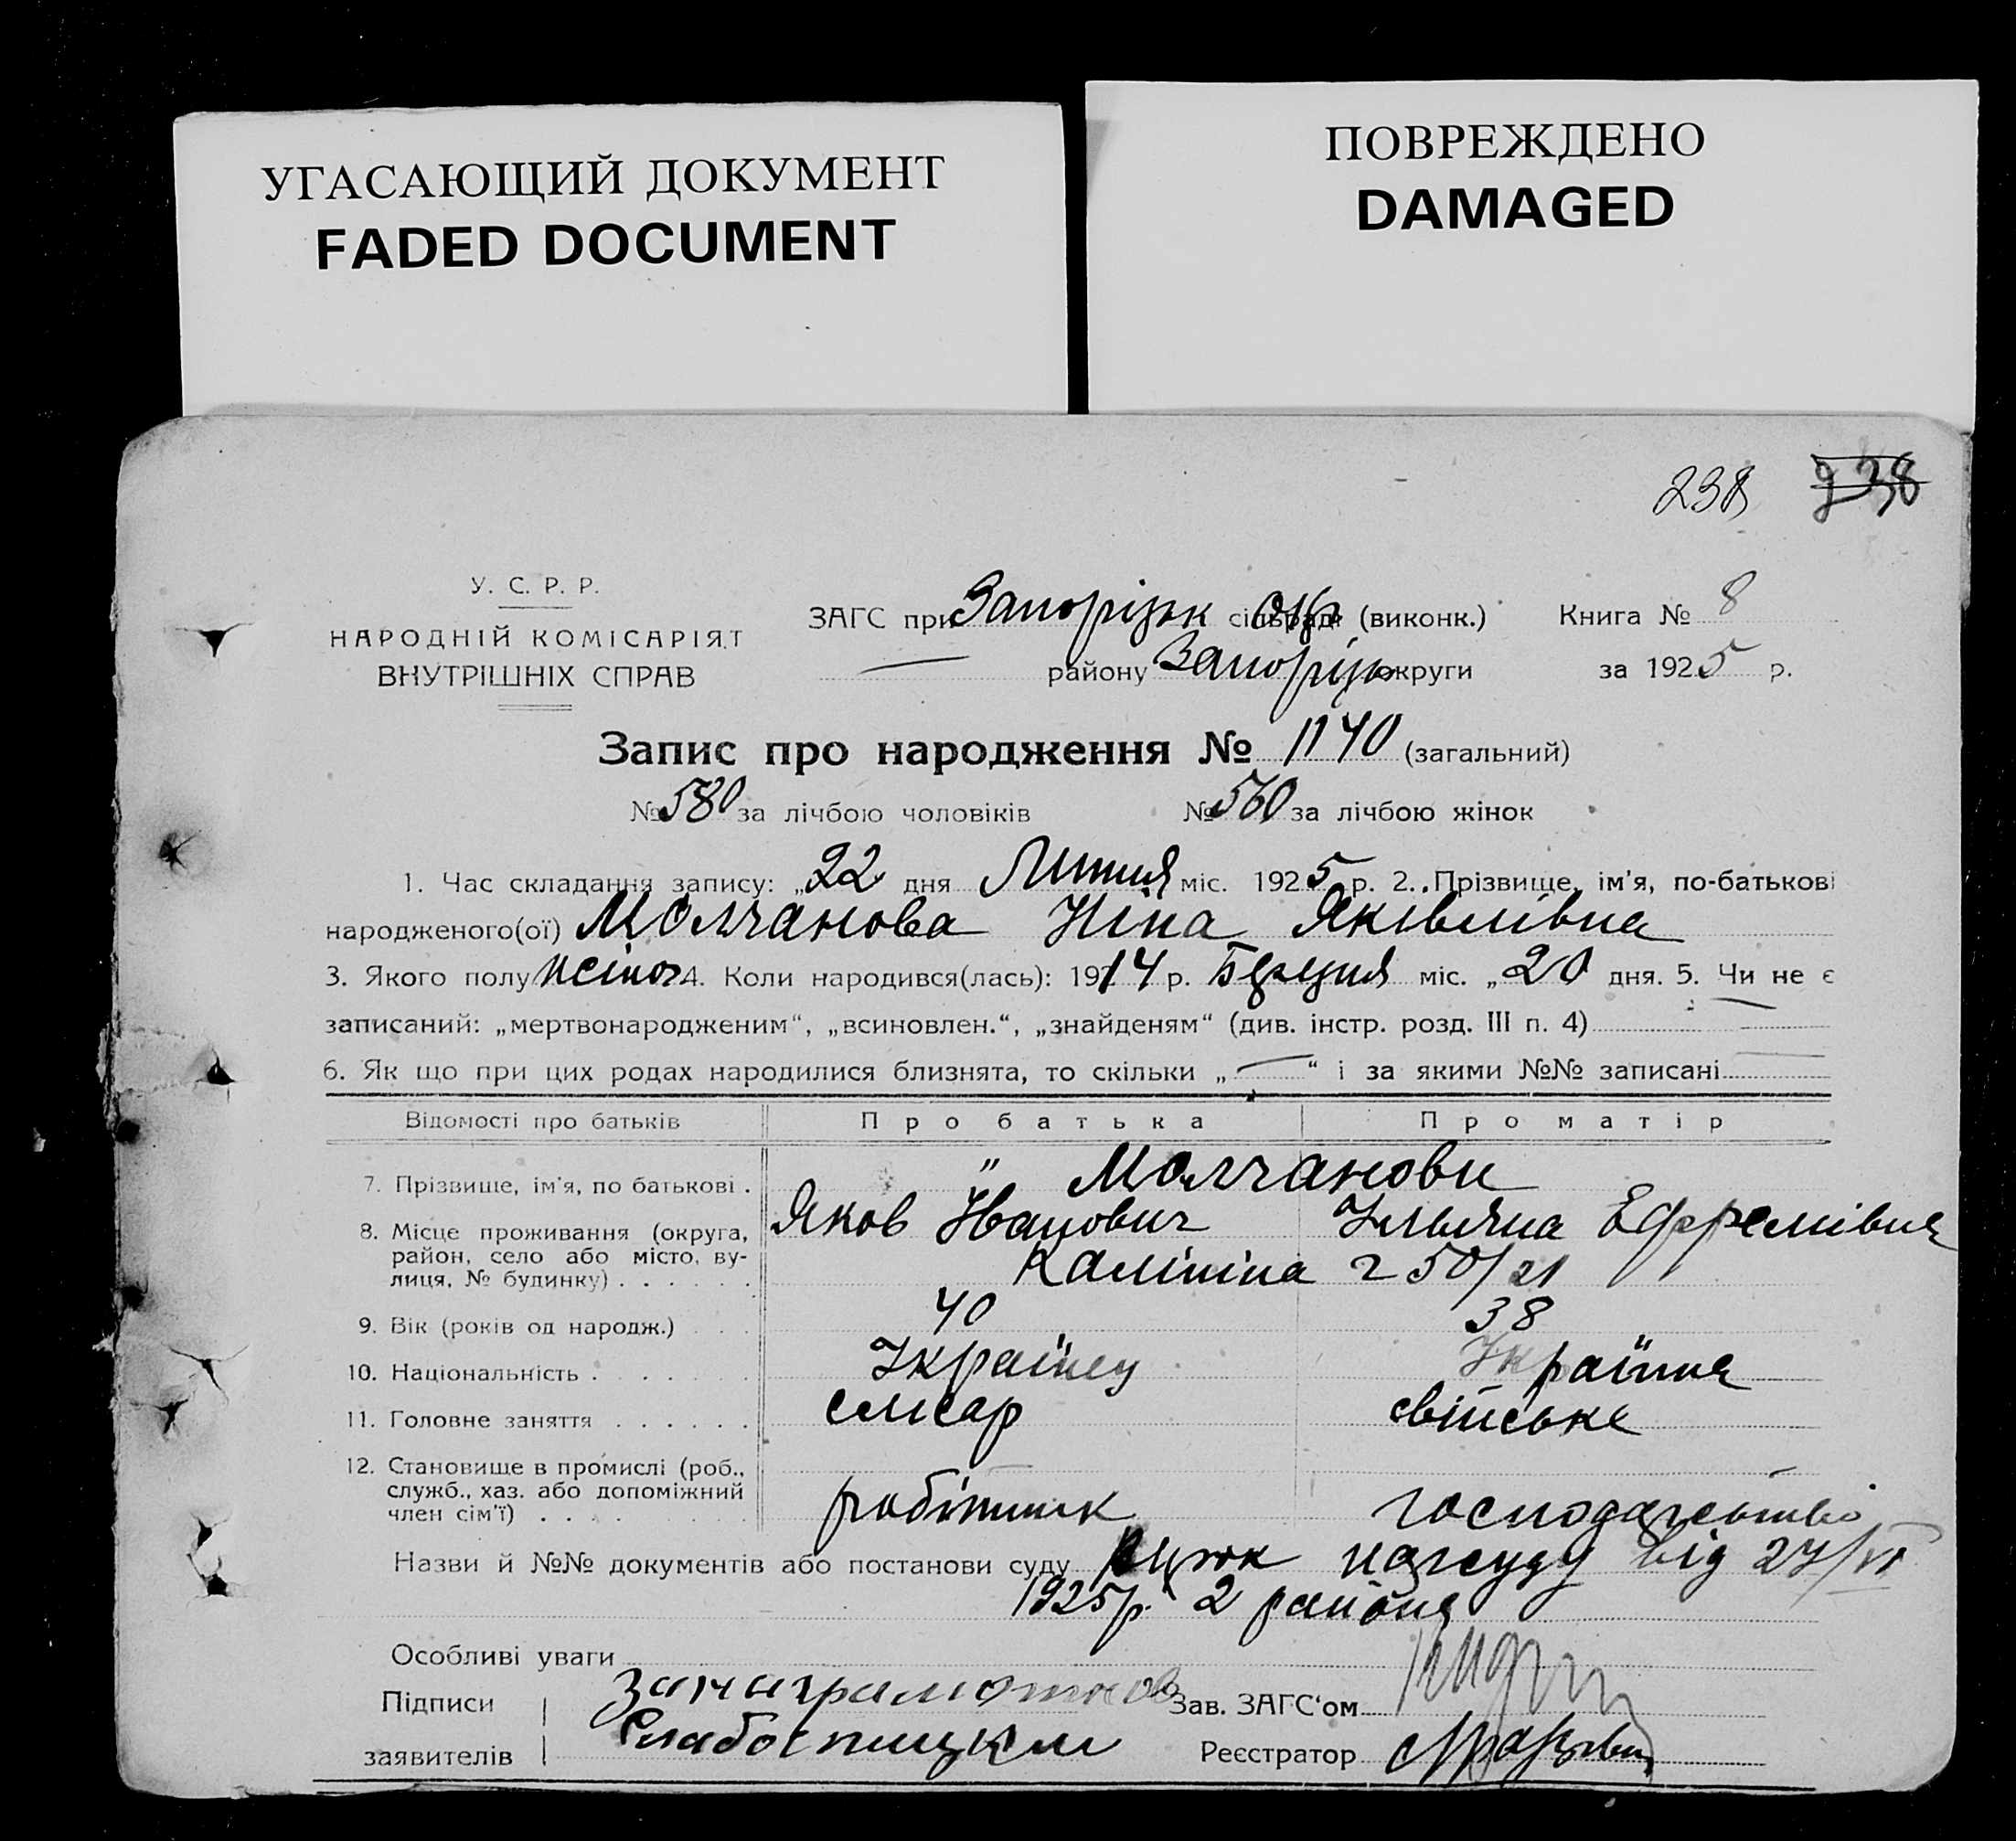 УГАСАЮЩИЙ ДОКУМЕНТ
FADED DOCUMENT
ПОВРЕЖДЕНО
DAMAGED
238 238
У. С. Р. Р.
НАРОДНІЙ КОМІСАРІЯТ
ВНУТРІШНІХ СПРАВ
ЗАГС при Запорізьк окр сільраді (виконк.) Книга № 8
— району Запорізьк округи за 1925 р.
Запис про народження № 1140 (загальний)
№ 580 за лічбою чоловіків № 560 за лічбою жінок
1. Час складання запису: „22 дня Липня міс. 1925 р. 2. Прізвище, ім'я, по-батькові
народженого(ої) Молчанова Ніна Яківлівна
3. Якого полу жіноч 4. Коли народився(лась): 1914 р. Березня міс. „20 дня. 5. Чи не є
записаний: „мертвонародженим“, „всиновлен.“, „знайденям“ (див. інстр. розд. III п. 4) —
6. Як що при цих родах народилися близнята, то скільки „—“ і за якими №№ записані —
Відомості про батьків Про батька Про матір
7. Прізвище, ім'я, по батькові . „ Молчанови
Яков Іванович Ульяна Ефремівна
8. Місце проживання (округа,
район, село або місто, ву-
лиця, № будинку) . . . . . . Калініна 2 50/21
9. Вік (років од народж.) . . . 40 38
10. Національність . . . . . . . Українец Українка
11. Головне заняття . . . . . . слюсар свійське
12. Становище в промислі (роб.,
служб., хаз. або допоміжний
член сім'ї) . . . . робітник господарство
Назви й №№ документів або постанови суду нарсуду від 27/VI
1925р. 2 района
Особливі уваги
Підписи за неграмотнов Зав. ЗАГС'ом
заявителів Слабоспицкий Реєстратор